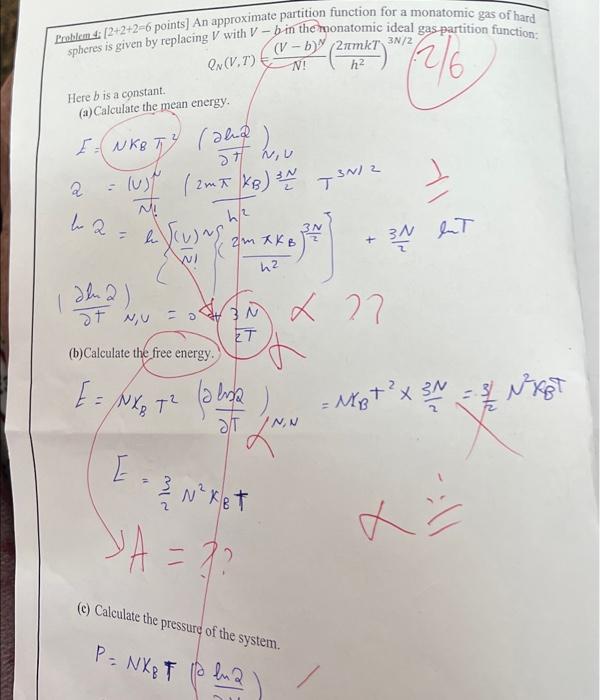 Problem 4: [2+2+2=6 points] An approximate partition function for a monatomic gas of hard
spheres is given by replacing V with V − b in the monatomic ideal gas partition function:
Q_N(V,T) = (V − b)^N / N! (2πmkT / h²)^{3N/2}
2/6
Here b is a constant.
(a)Calculate the mean energy.
E = NK_B T² (∂ln2 / ∂T)_{N,V}
2 = (V)^N / N! (2mπ K_B / h²)^{3N/2} T^{3N/2}
ln 2 = ln { (V)^N / N! { 2mπK_B / h² }^{3N/2} } + 3N/2 lnT
(∂ln2 / ∂T)_{N,V} = 0 + 3N / 2T ??
(b)Calculate the free energy.
E = NK_B T² (∂ln2 / ∂T)_{N,N} = NK_B T² × 3N/2 = 3/2 N²K_BT
E = 3/2 N² K_B T
A = ??
(c) Calculate the pressure of the system.
P = NK_B T (∂ ln2)